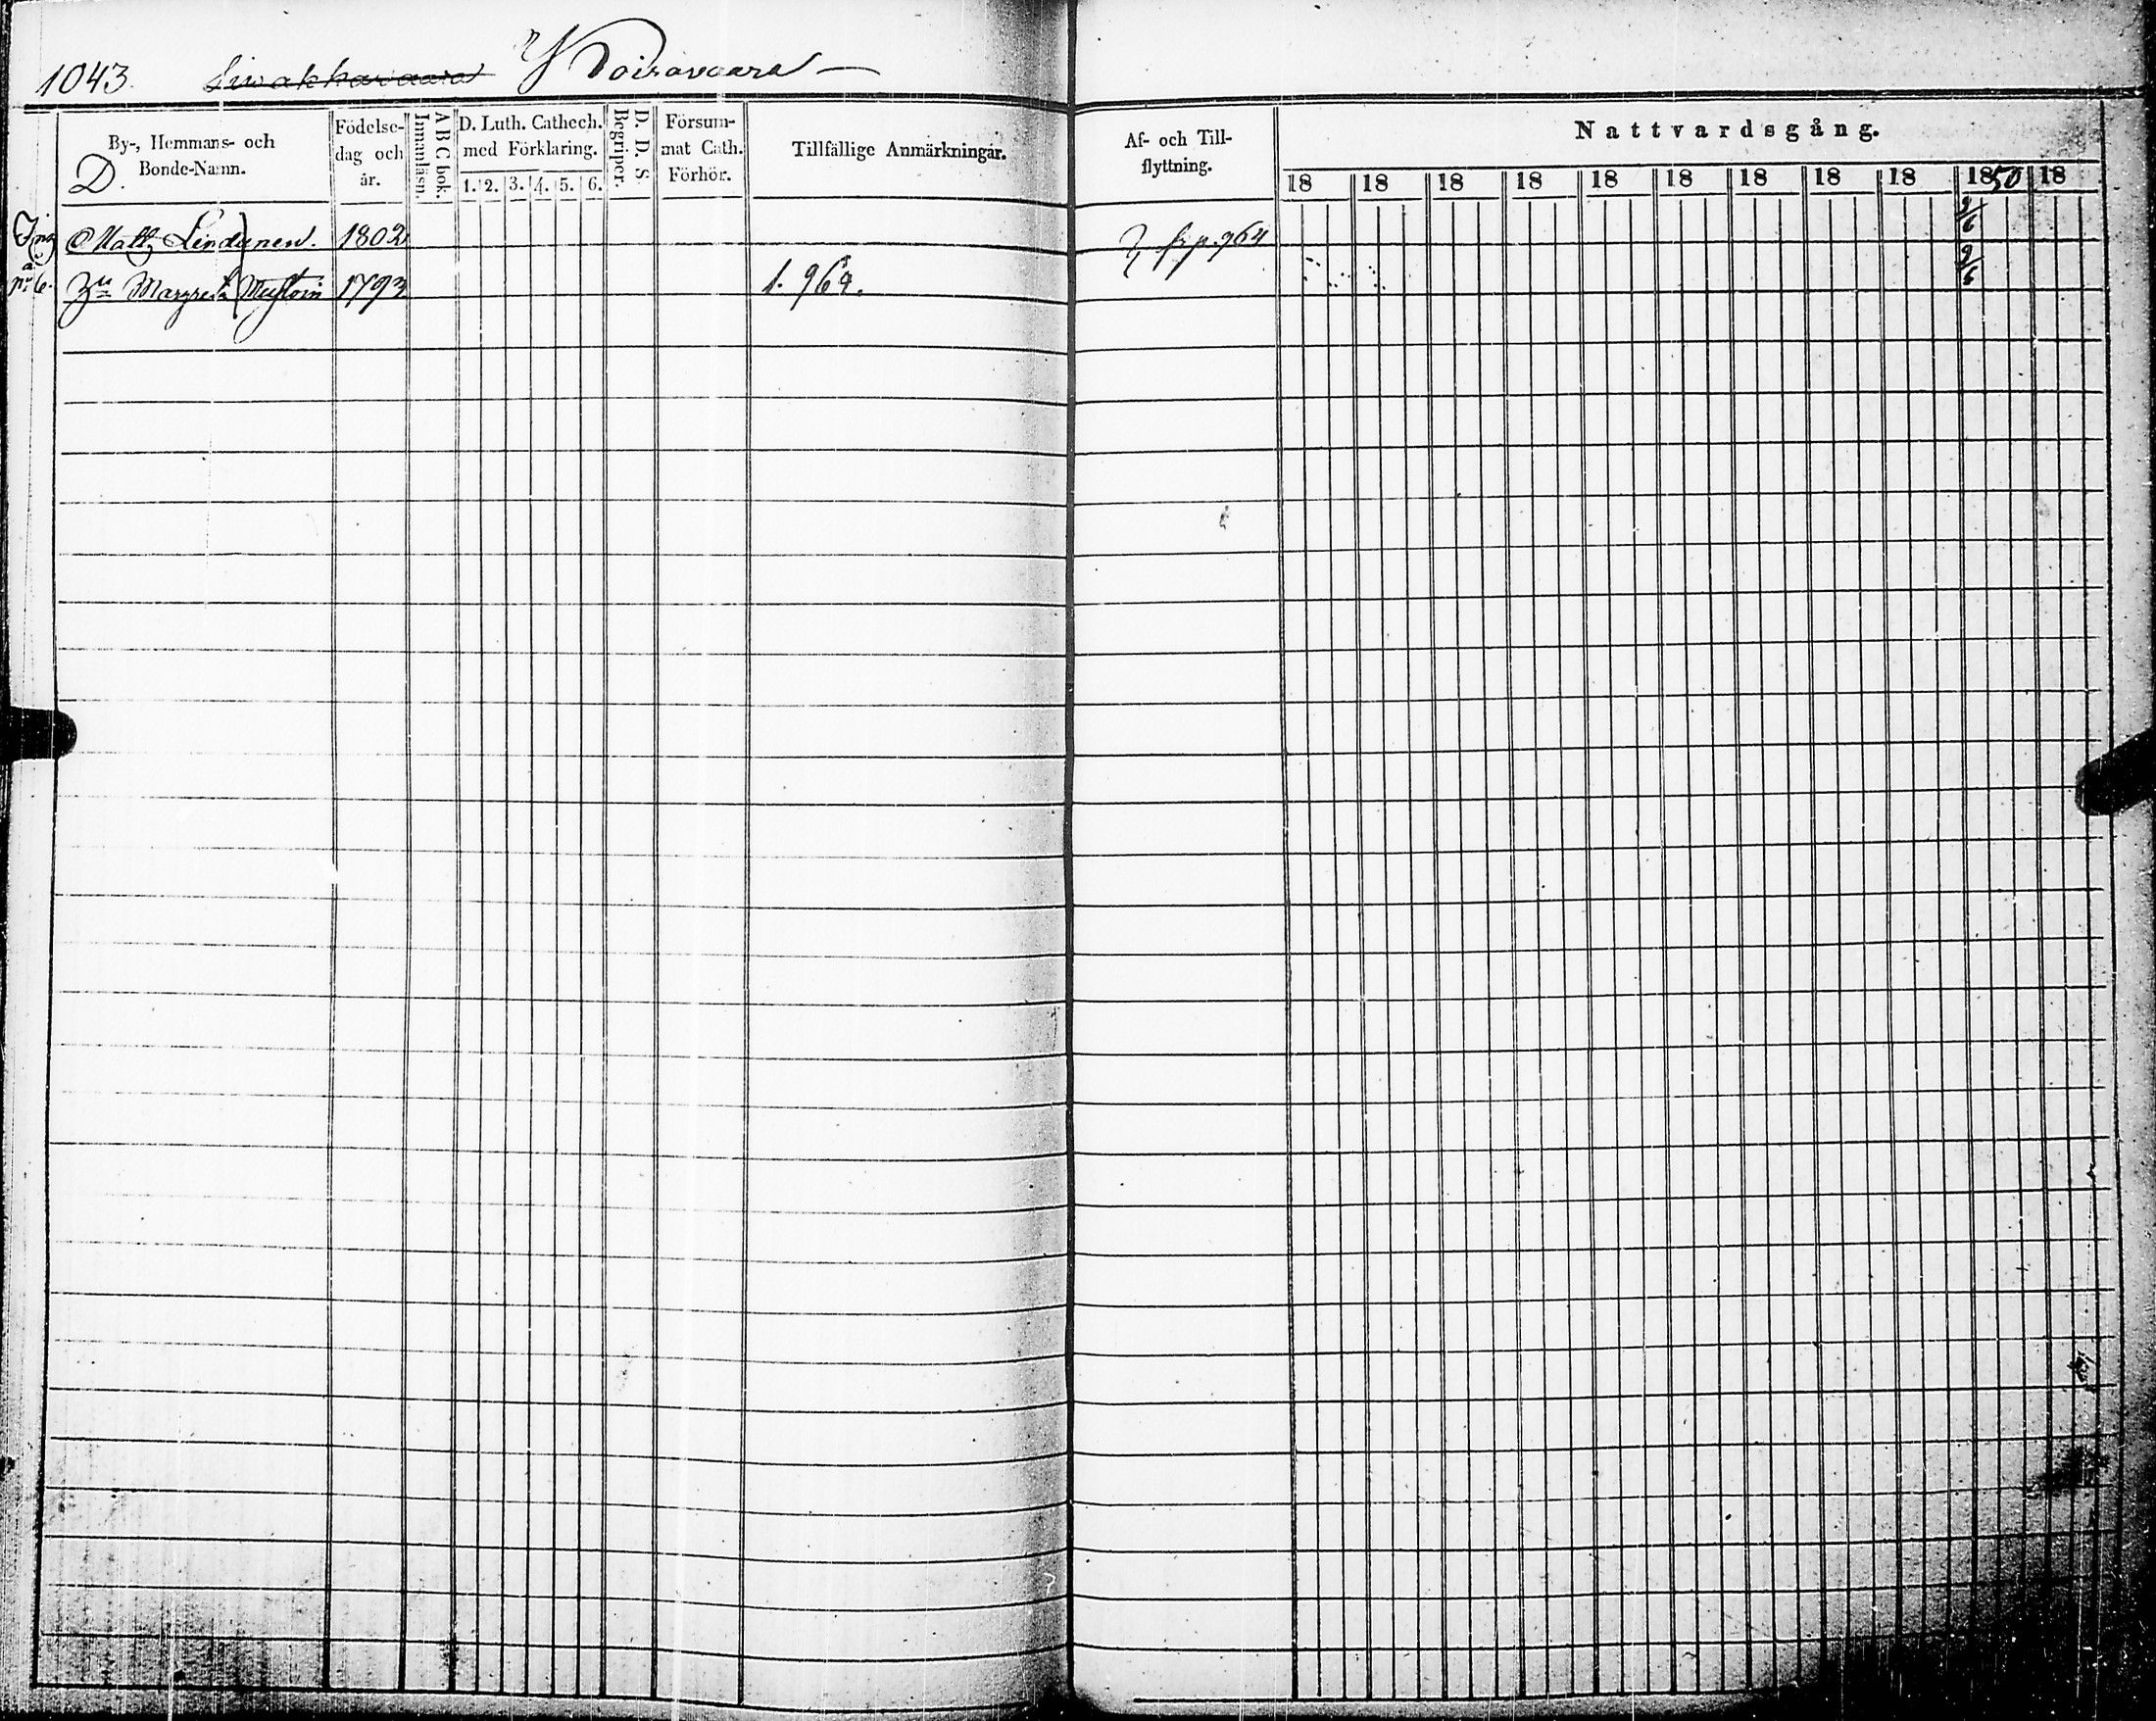 1043. Siwakkavaara Koiravaara —
By-, Hemmans- och Bonde-Namn.
D.
Födelse-dag och år.
A B C bok. Innanläsn.
D. Luth. Cathech. med Förklaring.
1. 2. 3. 4. 5. 6.
D. D. S. Begriper.
Försum-mat Cath. Förhör.
Tillfällige Anmärkningar.
Af- och Till-flyttning.
Nattvardsgång.
18 18 18 18 18 18 18 18 18 1850 18
Matts 1802 fr p. 964 9/6
Margreta 1793 1. 964. 9/6